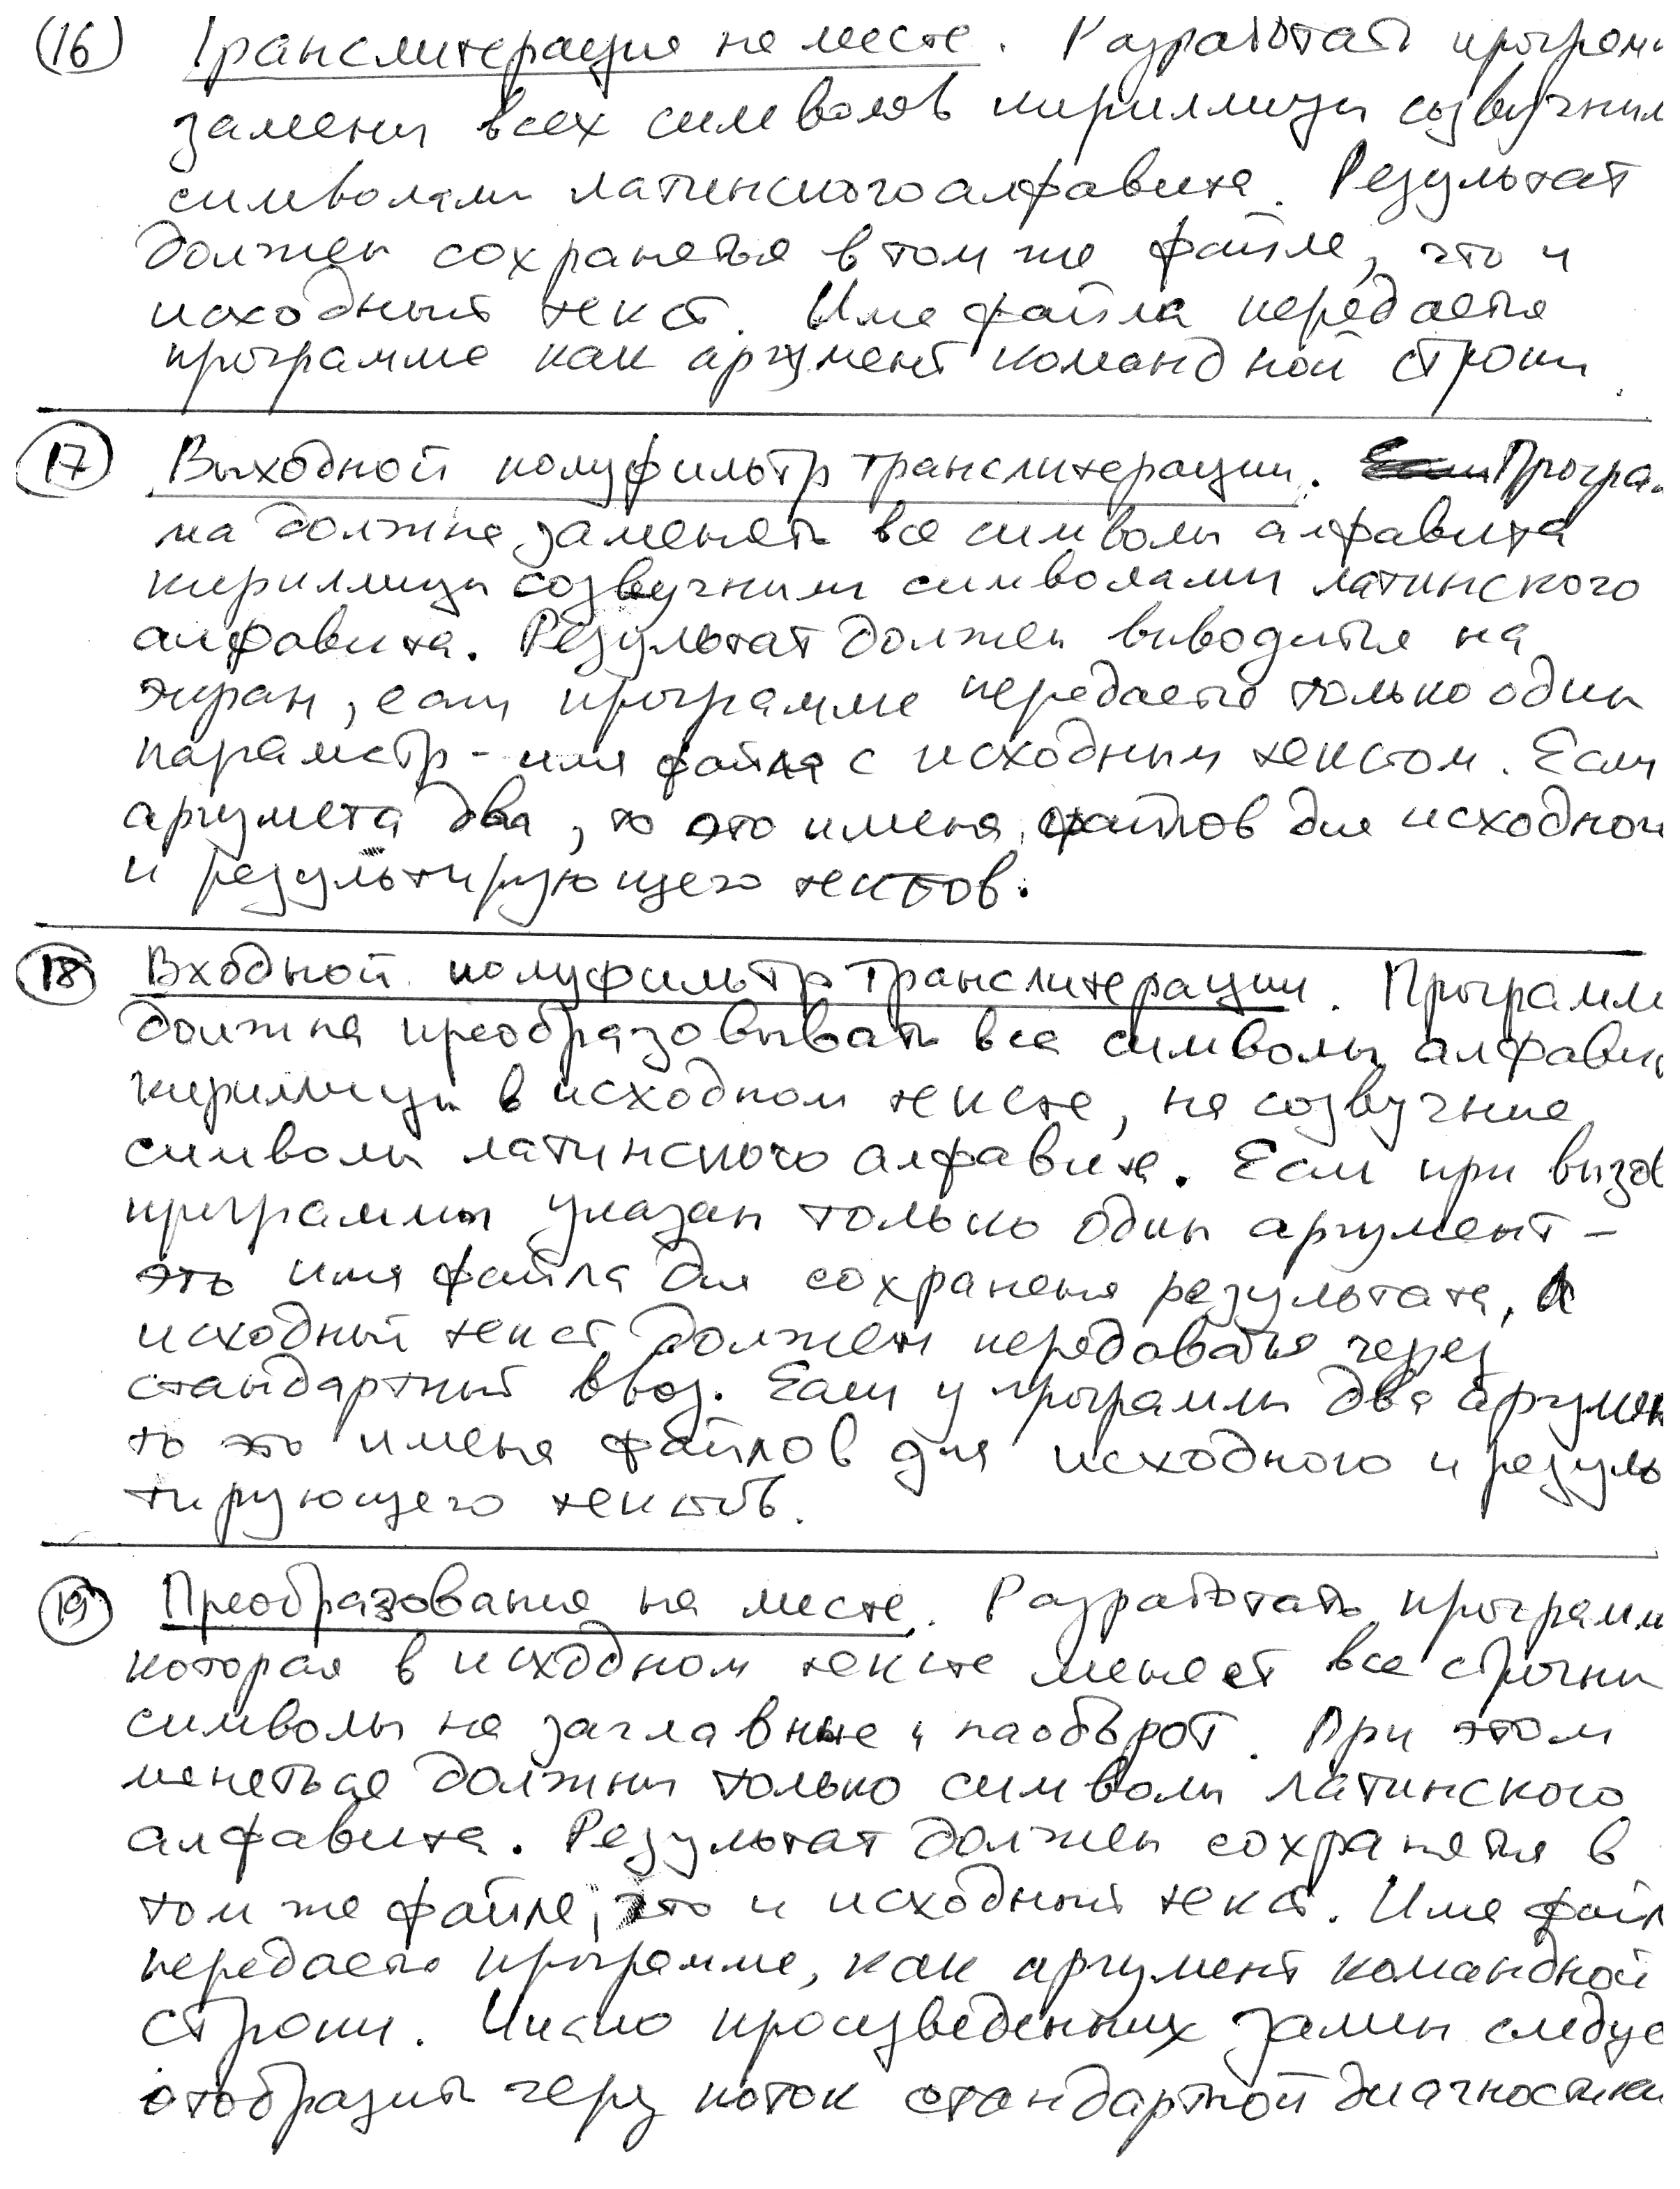 (16) Транслитерация на месте. Разработать програм
замены всех символов кириллицы созвучным
символами латинского алфавита. Результат
должен сохраняться в том же файле, что и
исходный текст. Имя файла передается
программе как аргумент командной строки.
(17) Выходной полуфильтр транслитерации. Програ
ма должна заменять все символы алфавита
кириллицы созвучными символами латинского
алфавита. Результат должен выводиться на
экран, если программе передается только один
параметр - имя файла с исходным текстом. Если
аргумета два, то это имена файлов для исходного
и результирующего текстов.
(18) Входной полуфильтр транслитерации. Программ
должна преобразовывать все символы алфави
кириллицы в исходном тексте, на созвучные
символы латинского алфавита. Если при вызо
программы указан только один аргумент -
это имя файла для сохраненья результата, А
исходный текст должен передаваться через
стандартный ввод. Если у программы два аргумен
то это имена файлов для исходного и резуль
тирующего текстов.
(19) Преобразование на месте. Разработать программ
которая в исходном тексте меняет все строчны
символы на заглавные и наоборот. При этом
меняться должны только символы латинского
алфавита. Результат должен сохраняться в
том же файле, что и исходный текст. Имя файл
передается программе, как аргумент командной
строки. Число произведенных замен следуе
отобразить через поток стандартной диагностики